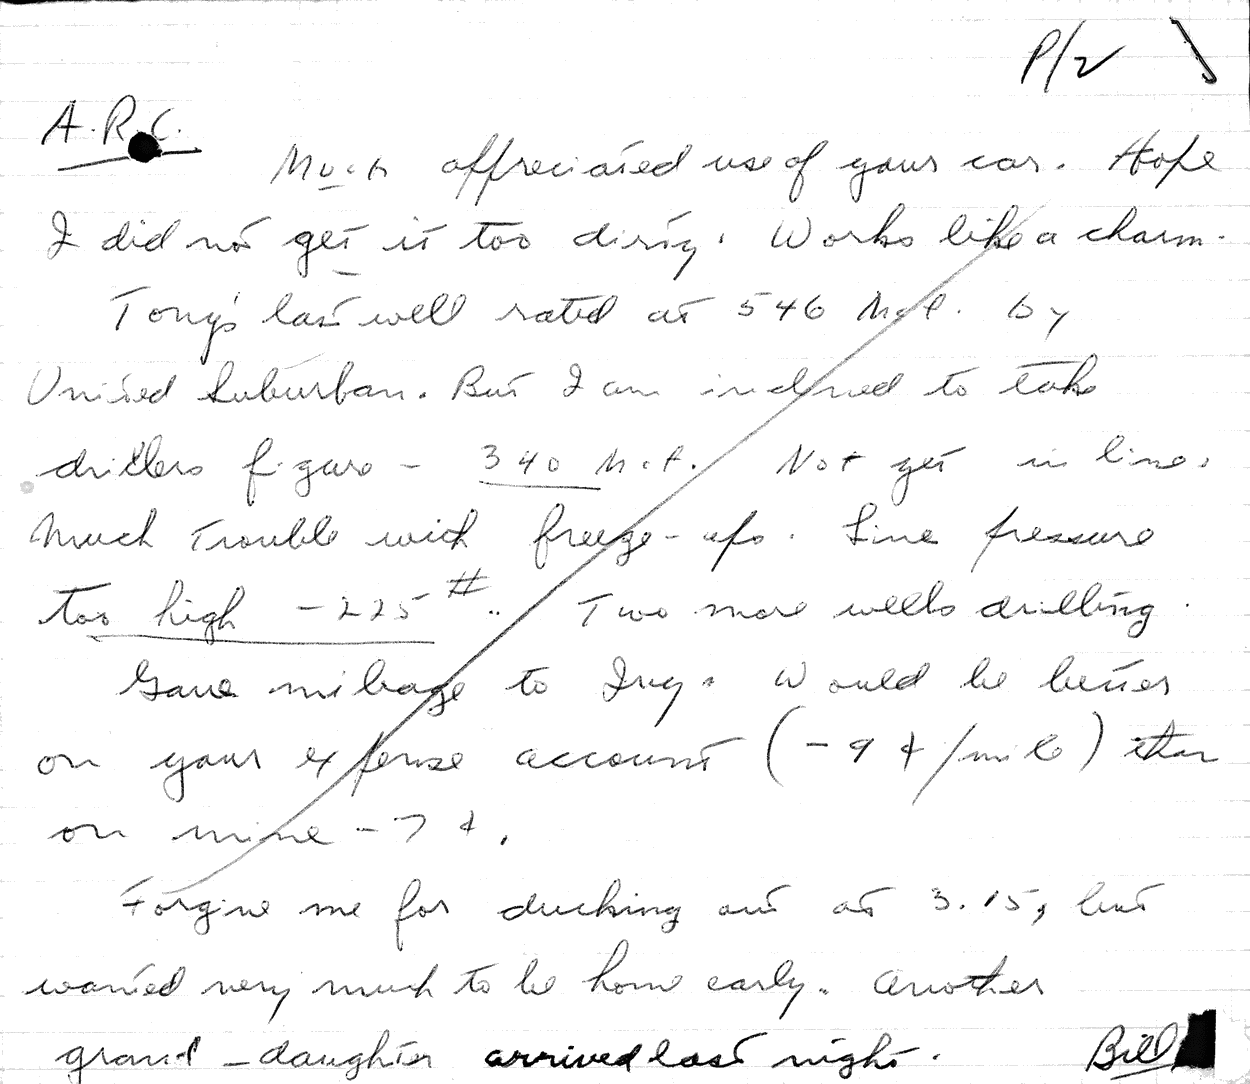 P/2
A.R.C.
Much appreciated use of your car. Hope
I did not get it too dirty. Works like a charm.
Tony's last well rated at 546 Mcf. by
United Suburban. But I am inclined to take
drillers figure - 340 Mcf. Not yet in line.
Much trouble with freeze-ups. Line pressure
too high - 225#. Two more wells drilling.
Gave mileage to Ivy. Would be better
on your expense account (-9¢/mile) than
on mine - 7¢.
Forgive me for ducking out at 3.15, but
wanted very much to be home early. Another
grand-daughter arrived last night.
Bill